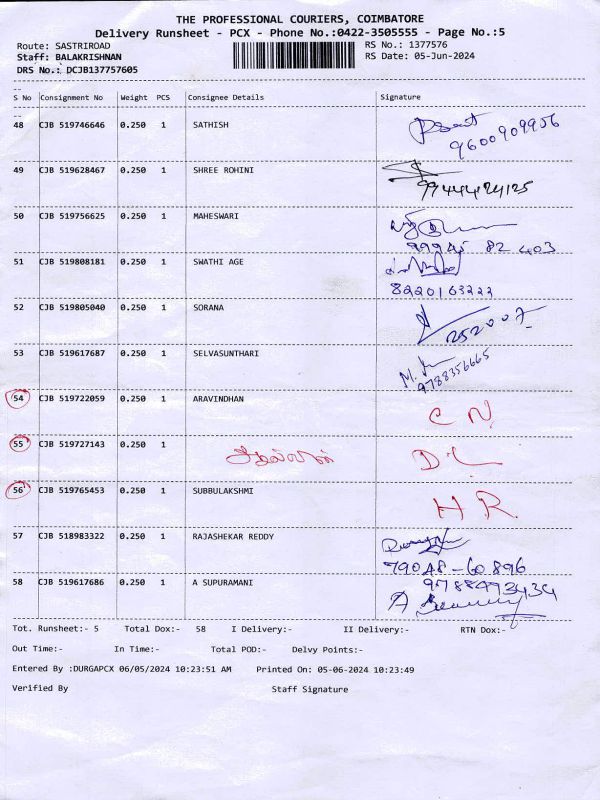 THE PROFESSIONAL COURIERS, COIMBATORE
Delivery Runsheet - PCX - Phone No.:0422-3505555 - Page No.:5
Route: SASTRIROAD RS No.: 1377576
Staff: BALAKRISHNAN RS Date: 05-Jun-2024
DRS No.: DCJB137757605
--
S No Consignment No Weight PCS Consignee Details Signature
--
48 CJB 519746646 0.250 1 SATHISH
9600909956
49 CJB 519628467 0.250 1 SHREE ROHINI
9944424125
50 CJB 519756625 0.250 1 MAHESWARI
99945 82403
51 CJB 519808181 0.250 1 SWATHI AGE
8220163222
52 CJB 519805040 0.250 1 SORANA
252007
53 CJB 519617687 0.250 1 SELVASUNTHARI
9788356665
54 CJB 519722059 0.250 1 ARAVINDHAN
C N
55 CJB 519727143 0.250 1
D L
56 CJB 519765453 0.250 1 SUBBULAKSHMI
H R
57 CJB 518983322 0.250 1 RAJASHEKAR REDDY
79048-60896
58 CJB 519617686 0.250 1 A SUPURAMANI 9788493434
Tot. Runsheet:- 5 Total Dox:- 58 I Delivery:- II Delivery:- RTN Dox:-
Out Time:- In Time:- Total POD:- Delvy Points:-
Entered By :DURGAPCX 06/05/2024 10:23:51 AM Printed On: 05-06-2024 10:23:49
Verified By Staff Signature